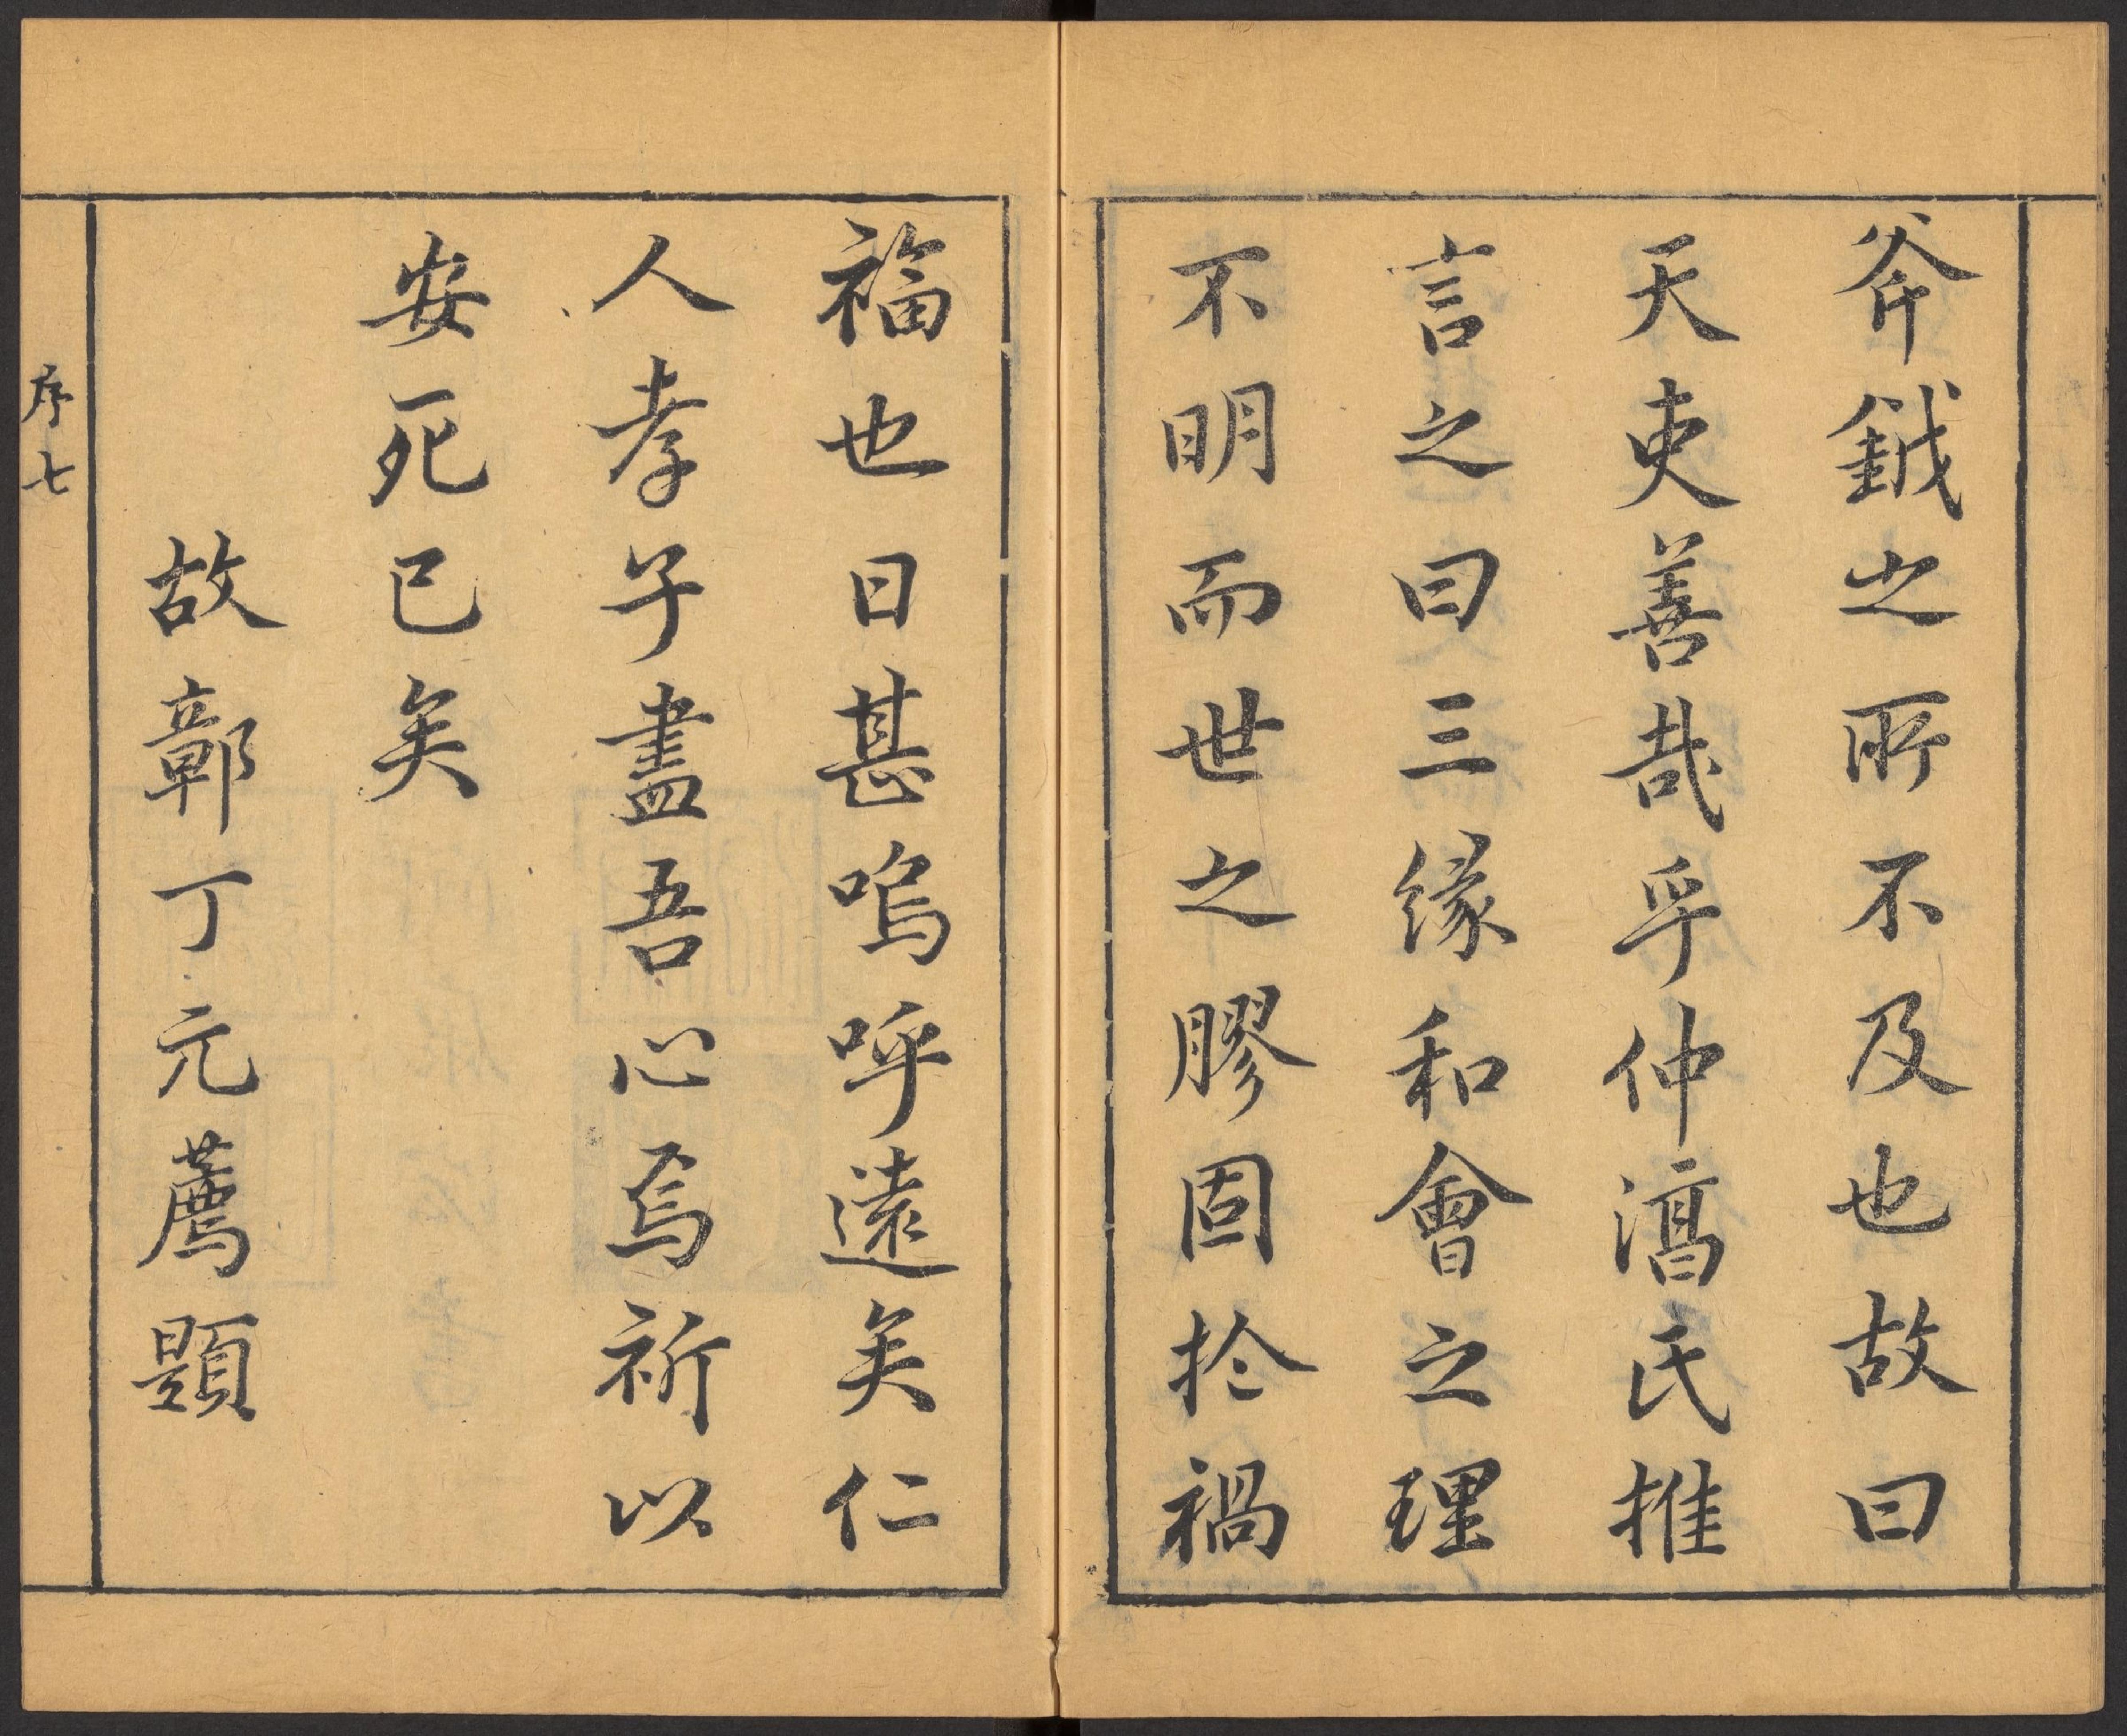 斧鉞之所不及也故曰
天吏善哉乎仲淳氏推
言之曰三緣和會之理
不明而世之膠固扵禍
福也日甚嗚呼遠矣仁
人孝子盡吾心焉祈以
安死已矣
故鄣丁元薦題
序七